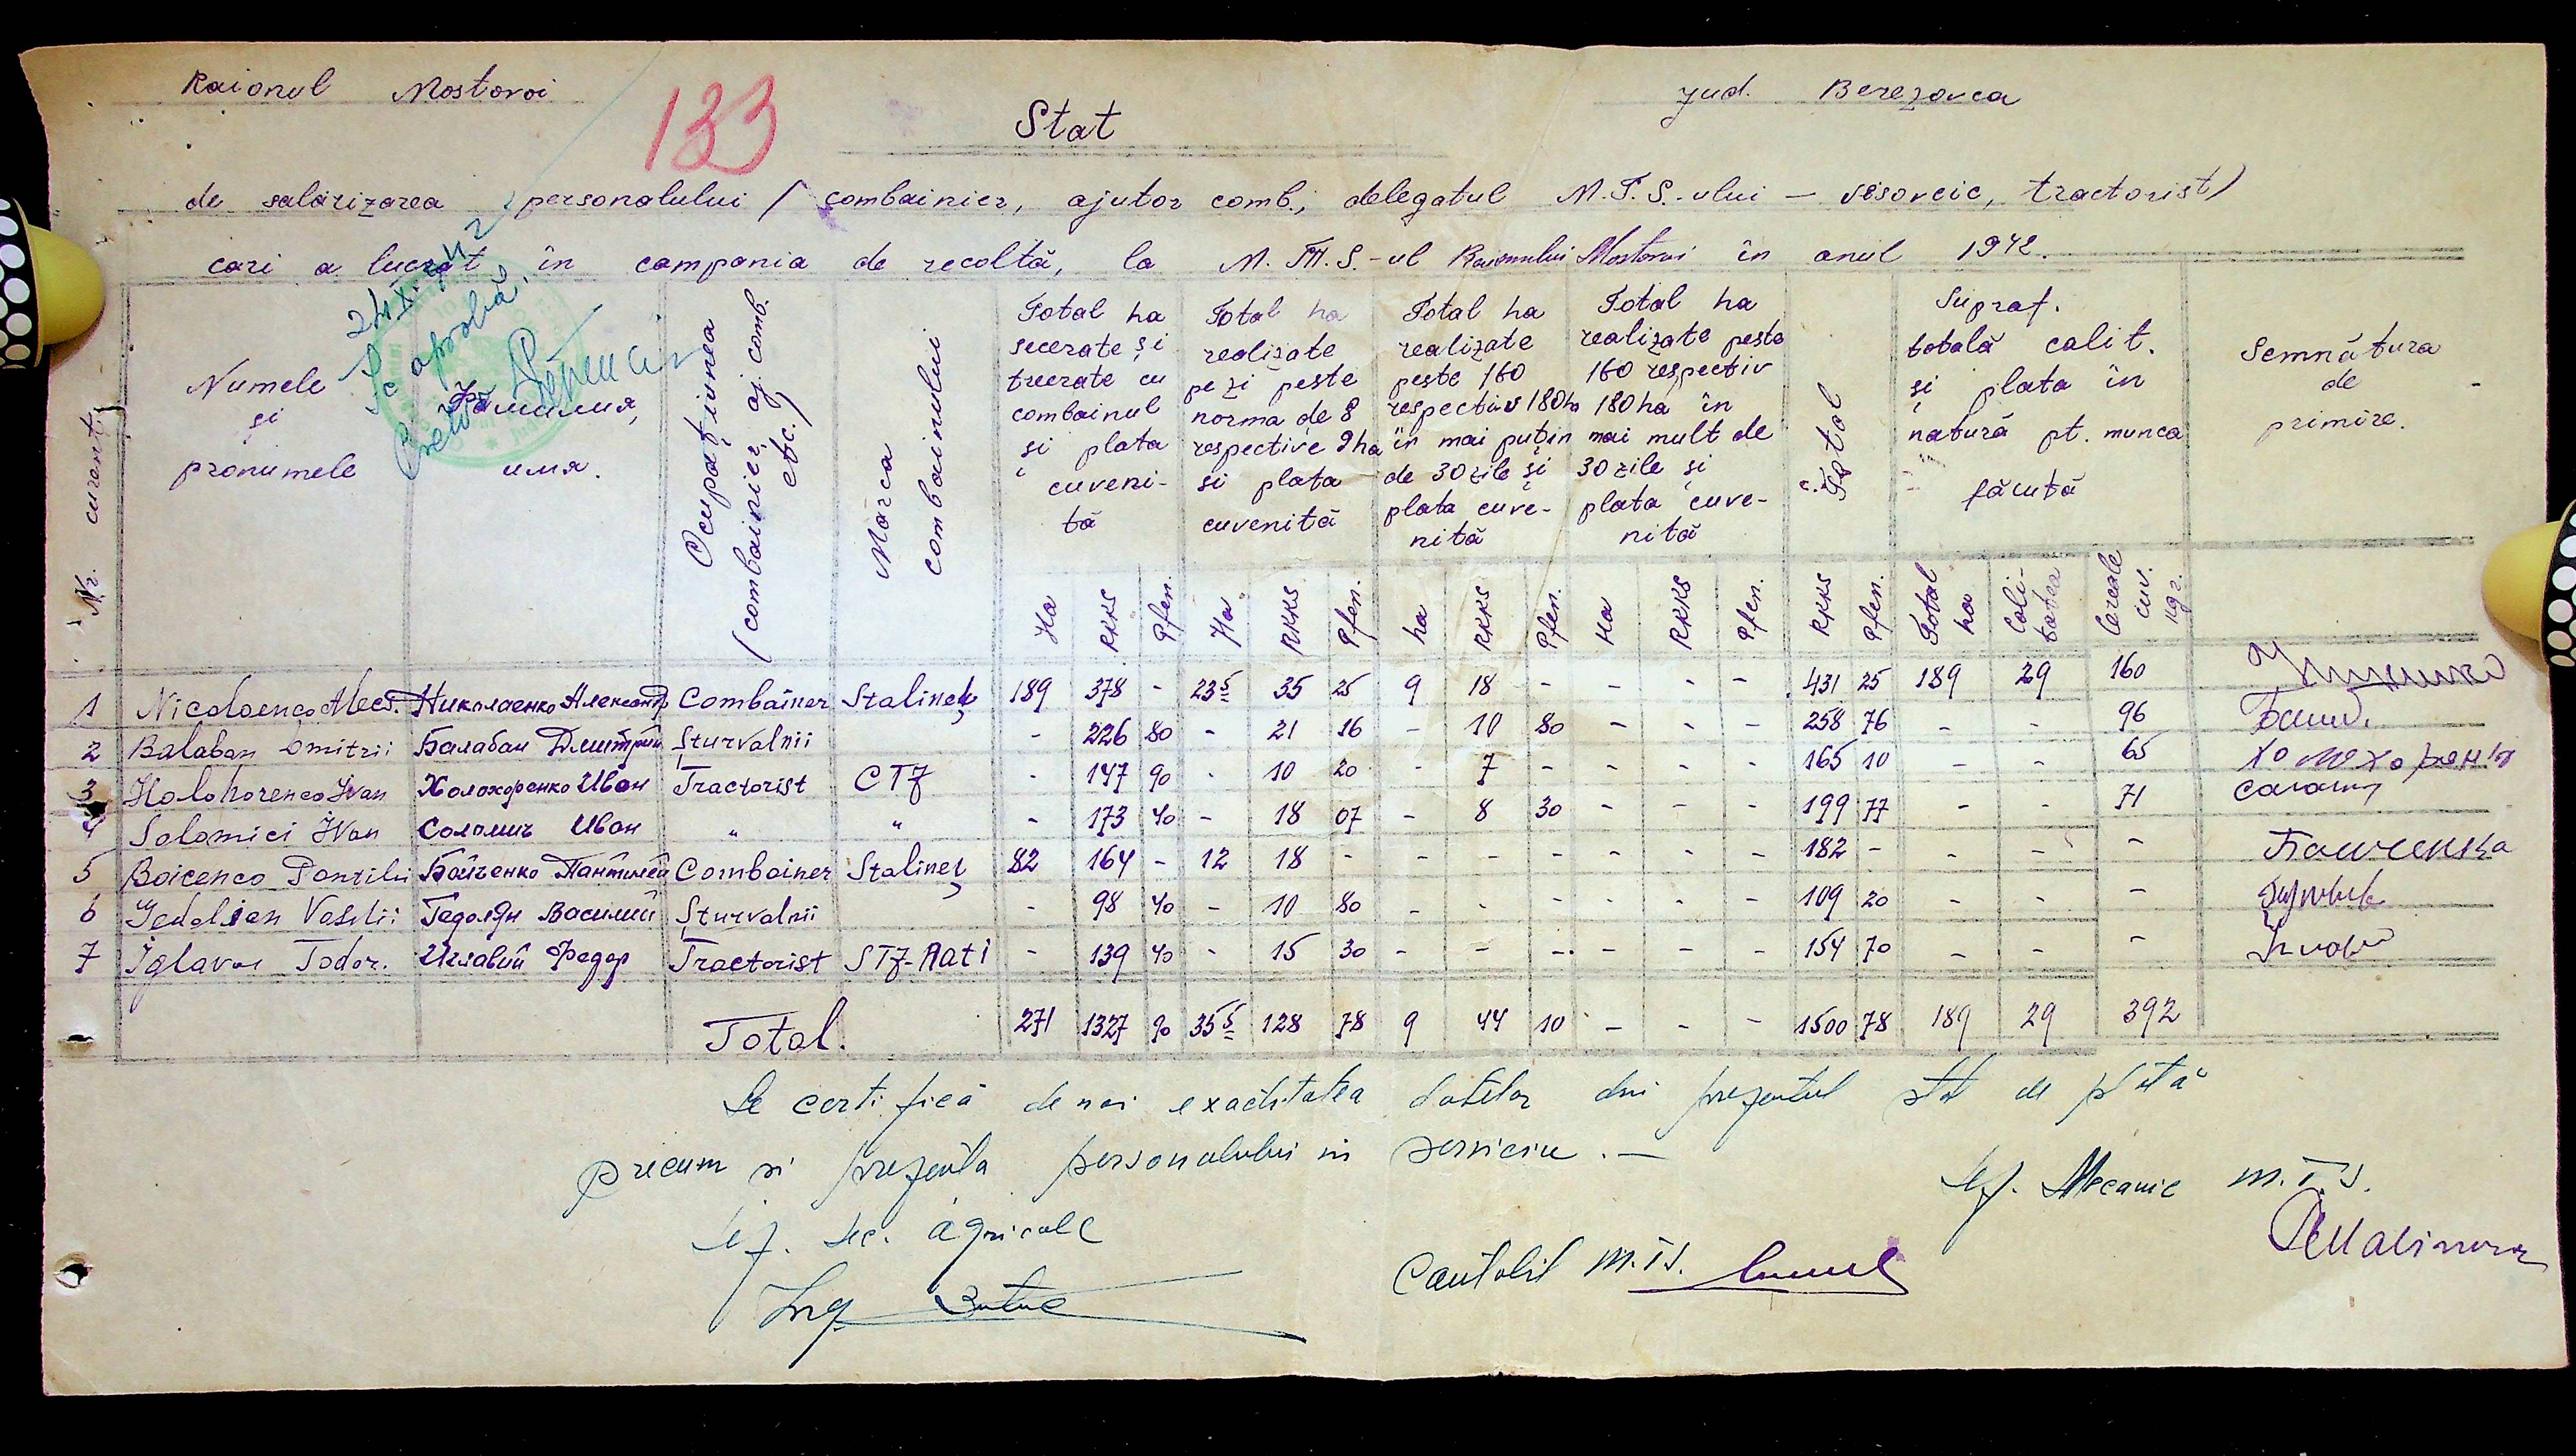 Raionul Mostovoi
jud. Berezovca
133
Stat
de salarizarea personalului / combainier, ajutor comb., delegatul M.T.S.-ului – vesovcic, tractorist/
cari a lucrat în campania de recoltă, la M.T.S.-ul Raionului Mostovoi în anul 1942.
Se aprobă
Nr. curent
Numele și pronumele
Фамилия, имя.
Ocupațiunea (combainier, aj. comb. etc.)
Marca combainului
Total ha secerate și treerate cu combainul și plata cuveni-tă
Total ha realizate pe zi peste norma de 8 respective 9 ha si plata cuvenită
Total ha realizate peste 160 respectiv 180 ha în mai puțin de 30 zile și plata cuve-nită
Total ha realizate peste 160 respectiv 180 ha în mai mult de 30 zile și plata cuve-nită
Total
Supraf. totală calit. și plata în natură pt. munca făcută
Semnătura de primire.
Ha RKKS Pfen. Ha RKKS Pfen. ha RKKS Pfen. Ha RKKS Pfen. RKKS Pfen. Total ha Cali-tatea Cereale cuv. kgr.
1 Nicolaenco Alecs. Николаенко Александр Combainer Stalineț 189 378 - 23⁵ 35 25 9 18 - - - - 431 25 189 29 160
2 Balaban Dmitrii Балабан Дмитрий Șturvalnii - 226 80 - 21 16 - 10 80 - - - 258 76 - - 96
3 Holohorenco Ivan Холохоренко Иван Tractorist CTZ - 147 90 - 10 20 - 7 - - - - 165 10 - - 65
4 Solomici Ivan Соломич Иван " " - 173 40 - 18 07 - 8 30 - - - 199 77 - - 71
5 Boicenco Pantilii Бойченко Пантилей Combainer Stalineț 82 164 - 12 18 - - - - - - - 182 - - - -
6 Gedolian Vasilii Гедолян Василий Șturvalnii - 98 40 - 10 80 - - - - - - 109 20 - - -
7 Iglavoi Todor. Иглавий Федор Tractorist STZ-Nati - 139 40 - 15 30 - - - - - - 154 70 - - -
Total. 271 1327 90 35⁵ 128 78 9 44 10 - - - 1500 78 189 29 392
Se certifică de noi exactitatea datelor din prezentul stat de plată
precum si prezența personalului in serviciu. –
Șef. Mecanic M.T.S.
Șef. sec. agricole
Contabil M.T.S.
Ing.